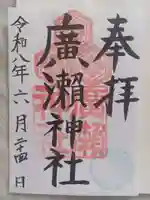 奉拝
廣瀬神社
令和八年六月二十四日